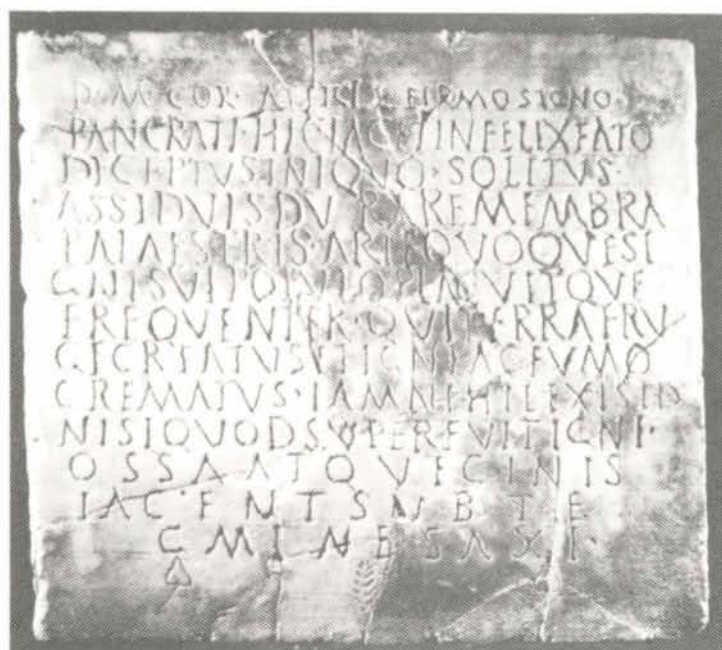 D·M·COR· FIRMO SIGNO·
PANCRATI·HIC IACET INFELIX FATO
DICEPTVS INIQVO·SOLITVS·
ASSIDVIS DVRARE MEMBRA
PALAESTRIS·ARTE QVOQVE SI
PLACVITQVE
FREQVENTER·QVI TERRA FRV
GE CREATVS VT IGNI AC FVMO
CREMATVS·IAM NEHIL
NISI QVOD SVPERFVIT IGNI·
OSSA ATQVE CINIS
IACENT SVB TE
GMINE SAXI·